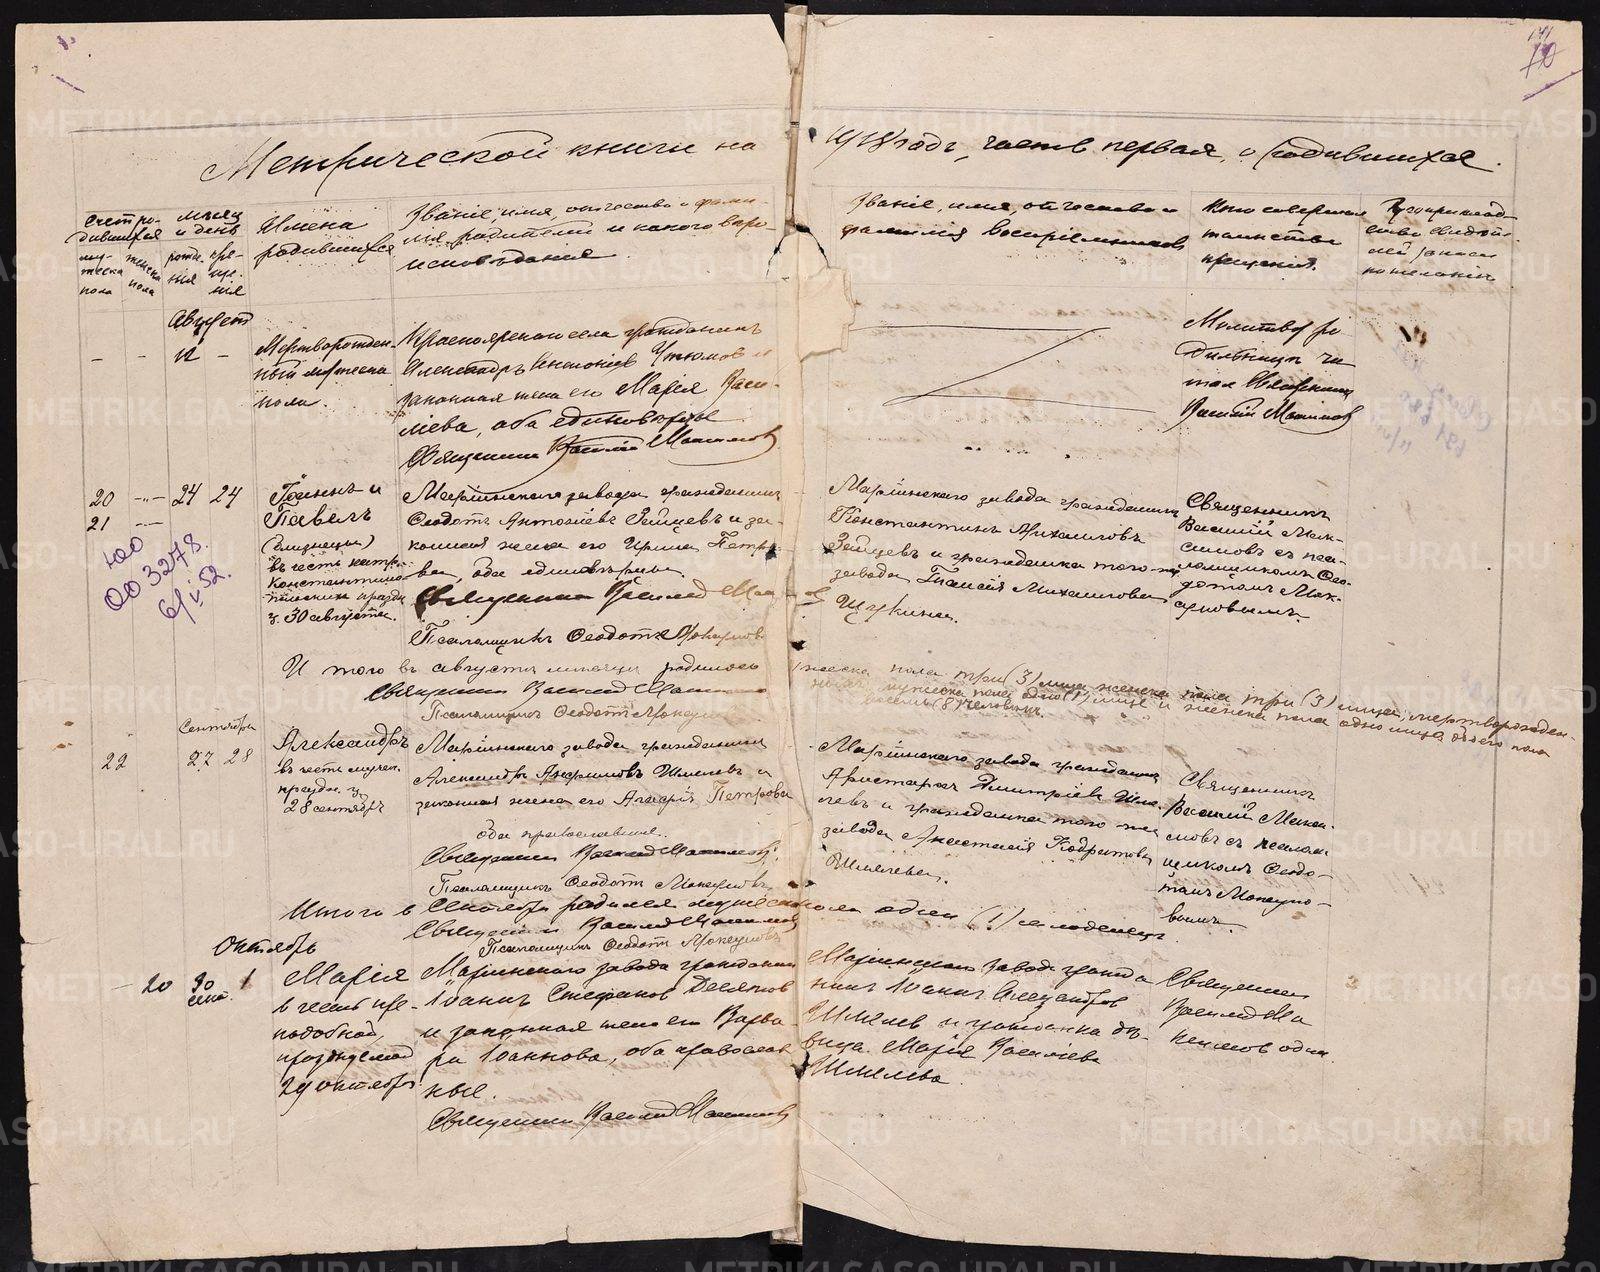 Метрической книги на 1918 годъ, часть первая, о родившихся.
Счетъ ро-
дившихся
му-
жеска
пола
женска
пола
Мѣсяц
и день
рожде-
нія
кре-
ще-
нія
Имена
родившихся
Званіе, имя, отчество и фами-
лія родителей и какого вѣро-
исповѣданія
Званіе, имя, отчество и
фамилія воспріемниковъ
Кто совершал
таинство
крещенія.
Рукоприклад-
ство свидѣте-
лей записи
по желанію
Августъ
- - 12 -
Мертворожден-
ный мужеска
пола.
Красноярскаго села гражданинъ
Александръ Утюмов и
законная жена его Марія Васи-
ліева, оба единоверцы
Священник Василій Максимов
Молитву ро
дильницѣ чи
тал Священник
Василій Максимов
20 -"- 24 24
21 -"-
Іоаннъ и
Павелъ
(близнецы)
въ честь патр.
Константино
польских праздн.
30 августа.
Маріинскаго завода гражданинъ
Феодотъ Антоніевъ Зайцевъ и за-
конная жена его Ирина Петро-
ва, оба единовѣрцы.
Священник Василий Максимов
Псаломщикъ Феодотъ Мокеуровъ
Маріинскаго завода гражданинъ
Константинъ Михаиловъ
Зайцевъ и гражданка того-же
завода Таисія Михаилова
Щукина.
Священникъ
Василій Мак-
симовъ съ пса-
ломщикомъ Фео-
дотомъ Мок-
еуровымъ.
ЮО
003278.
6/I 52.
Итого въ августѣ мѣсяцѣ родилось мужеска пола три (3) лица женска пола три (3) лица, мертворожден-
ных мужеска пола одно (1) лице и женска пола одно лице обоего пола
восемь (8) человѣкъ.
Священник Василий Максимов
Псаломщикъ Феодотъ Мокеуров
Сентябрь
22 27 28
Александръ
въ честь мучен.
праздн.
28 сентября
Маріинскаго завода гражданинъ
Александръ Шмелевъ и
законная жена его Агафія Петрова
оба православные.
Священник Василий Максимовъ.
Псаломщикъ Феодотъ Мокеуровъ
Маріинскаго завода гражданинъ
Аристархъ Димитріевъ Шме-
левъ и гражданка того-же
завода Анастасія Кодратова
Шмелева.
Священникъ
Василій Макси-
мовъ съ псалом-
щикомъ Феодо-
томъ Мокеуро-
вымъ.
Итого в Сентябрѣ родился мужеска пола один (1) младенецъ.
Священник Василий Максимов
Псаломщикъ Феодотъ Мокеуровъ
Октябрь
- 20 30
сент. 1
Марія
в честь пре-
подобной,
празднуемой
29 октября
Маріинскаго завода гражданин
Іоаннъ Стефанов Десятов
и законная жена его Варва-
ра Іоаннова, оба православ-
ные.
Священник Василий Максимов
Маріинскаго завода гражда
нинъ Іоаннъ Александров
Шмелев и гражданка дѣ-
вица Марія Василіева
Шмелева.
Священник
Василий Ма
ксимов один.
METRIKI.GASO-URAL.RU